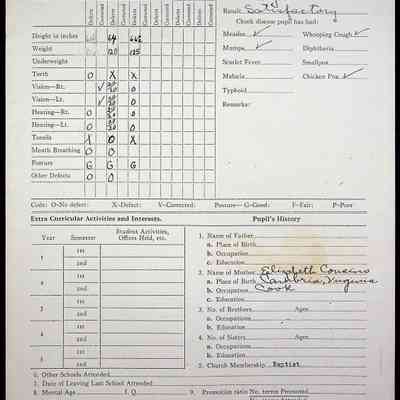 Defects Corrected Defects Corrected Defects Corrected Defects Corrected Defects Corrected Defects Corrected
Result Satisfactory
Check disease pupil has had:
Height in inches 64 64½
Measles ✓ Whooping Cough ✓
Weight 120 125
Mumps ✓ Diphtheria
Underweight
Scarlet Fever Smallpox
Teeth O X X
Malaria Chicken Pox ✓
Vision—Rt. ✓ 20/20 O
Typhoid
Vision—Lt. ✓ 20/20 O
Remarks:
Hearing—Rt. O 20/20 O
Hearing—Lt. O 20/20 O
Tonsils X O X
Mouth Breathing O O
Posture G G G
Other Defects O O
Code: O-No defect: X-Defect: V-Corrected: Posture— G-Good: F-Fair: P-Poor
Extra Curricular Activities and Interests.
Pupil's History
Year Semester Student Activities, Offices Held, etc.
1. Name of Father
a. Place of Birth
b. Occupation
c. Education
2. Name of Mother Elizabeth Cousins
a. Place of Birth Cumbria, Virginia
b. Occupation Cook
c. Education
3. No. of Brothers Ages
a. Occupations
b. Education
4. No. of Sisters Ages
a. Occupations
b. Education
5. Church Membership Baptist
1 1st
2nd
2 1st
2nd
3 1st
2nd
4 1st
2nd
5 1st
2nd
6. Other Schools Attended
7. Date of Leaving Last School Attended
8. Mental Age I. Q. 9. Promotion ratio No. terms Promoted